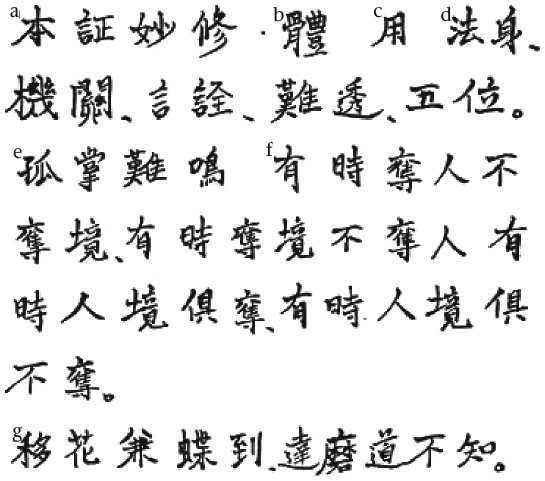 a本証妙修·b體 c用 d法身、
機關、言詮、難透、五位。
e孤掌難鳴 f有時奪人不
奪境、有時奪境不奪人有
時人境俱奪、有時人境俱
不奪。
g移花兼蝶到、達磨道不知。